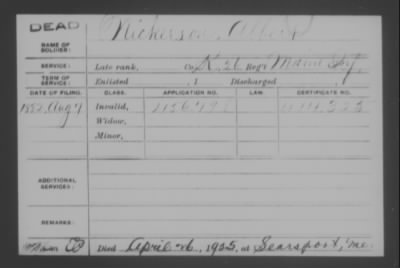 DEAD
NAME OF SOLDIER: Nickerson, Albert
SERVICE: Late rank, Co. K, 26 Reg't Maine Inf.
TERM OF SERVICE: Enlisted , 1 Discharged , 1
DATE OF FILING. CLASS. APPLICATION NO. LAW. CERTIFICATE NO.
1882, Aug 9 Invalid,
Widow,
Minor,
ADDITIONAL SERVICES:
REMARKS:
Died April 26, 1925, at Searsport, Me.